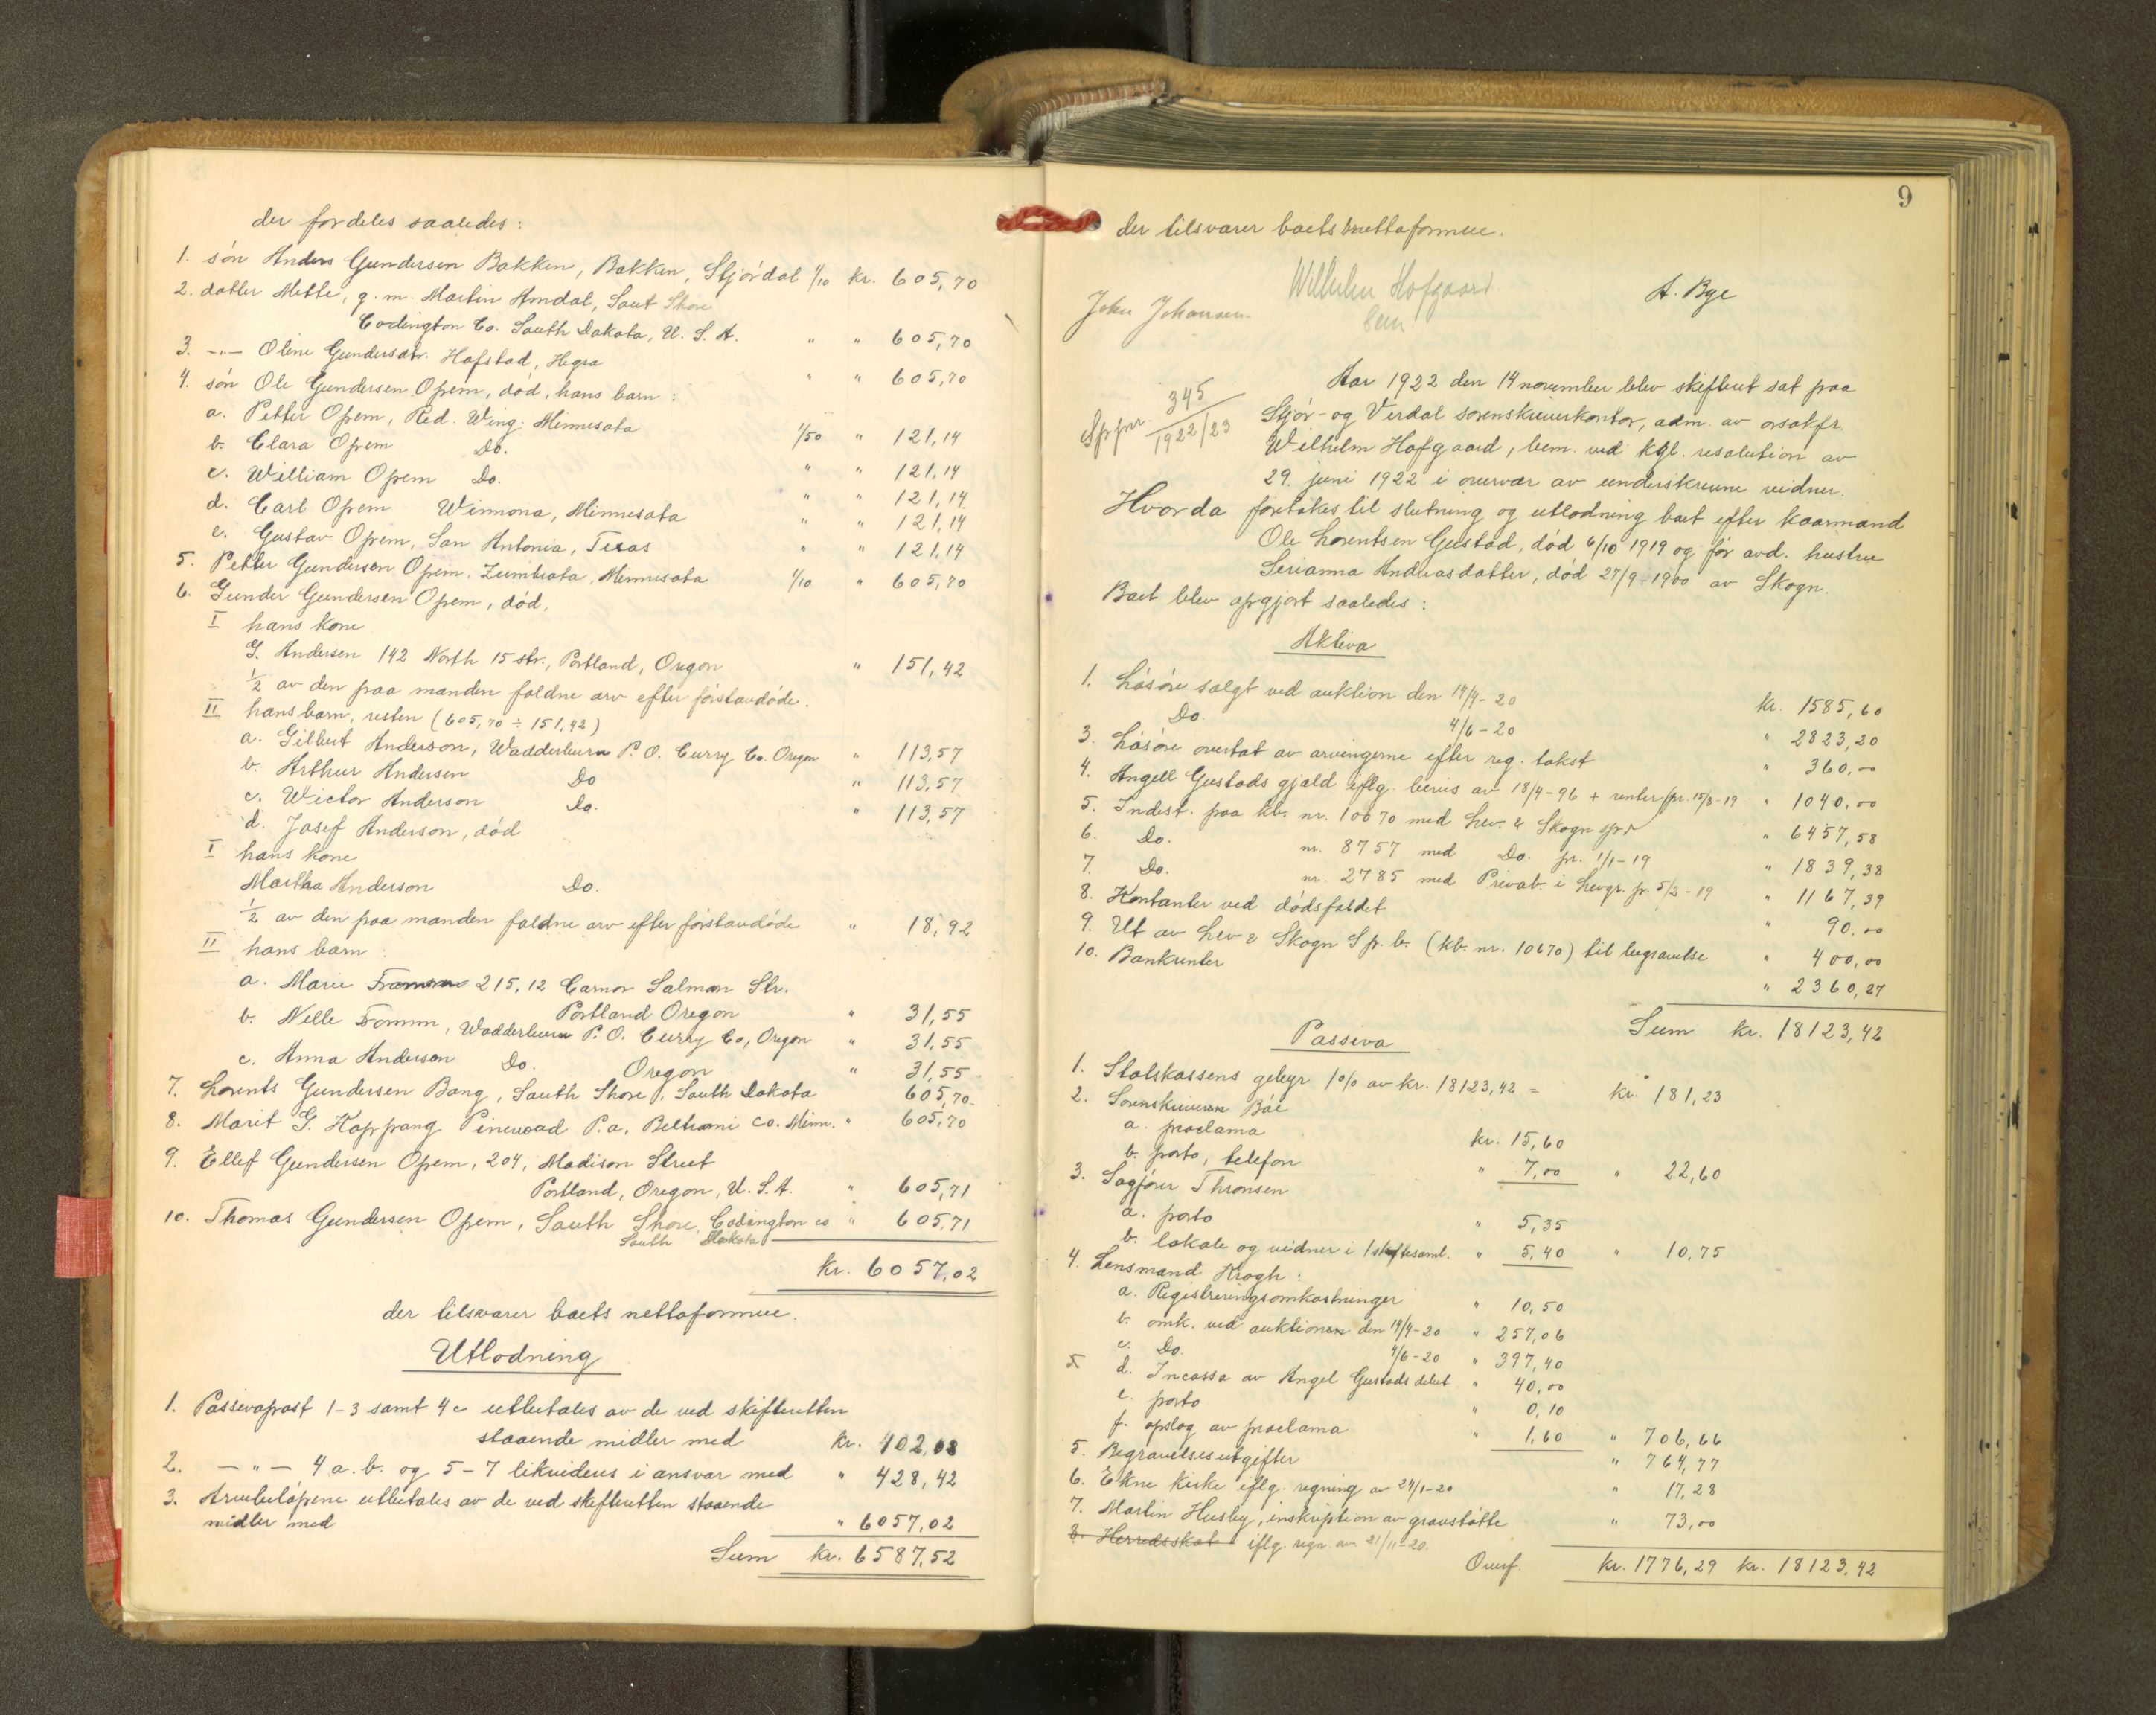 der fordeles saaledes:
1. søn Anders Gundersen Bakken, Bakken, Stjørdal 1/10 kr. 605,70
2. datter Mette, g.m. Martin Amdal, Sout Shore
Codington Co. South Dakota, U.S.A. " " 605,70
3. -"- Oline Gundersdtr. Hofstad, Hegra " " 605,70
4. søn Ole Gundersen Opem, død, hans barn:
a. Petter Opem, Red. Wing. Minnesota 1/50 " 121,14
b. Clara Opem Do. " " 121,14
c. William Opem Do. " " 121,14
d. Carl Opem Winnona, Minnesota " " 121,14
e. Gustav Opem, San Antonia, Texas " " 121,14
5. Petter Gundersen Opem, Zumbrota, Minnesota 1/10 " 605,70
6. Gunder Gundersen Opem, død,
I hans kone
G. Andersen 142 North 15 str., Portland, Oregon " 151,42
1/2 av den paa manden faldne arv efter førstavdøde.
II hans barn, resten (605,70 ÷ 151,42)
a. Gilbert Anderson, Wadderburn P.O. Curry Co. Oregon " 113,57
b. Arthur Andersen Do " 113,57
c. Wictor Anderson Do. " 113,57
d. Josef Anderson, død
I hans kone
Martha Anderson Do.
1/2 av den paa manden faldne arv efter førstavdøde " 18,92
II hans barn:
a. Marie 215,12 Carnor Salmon Str.
Portland Oregon " 31,55
b. Nelle Fromm, Wadderburn P.O. Curry Co, Oregon " 31,55
c. Anna Anderson Do. Oregon " 31,55
7. Lorents Gundersen Bang, South Shore, South Dakota 605,70
8. Marit G. Hoppang Pinewood P.a. Beltrami Co. Minn. " 605,70
9. Ellef Gundersen Opem, 204, Madison Street
Portland, Oregon, U.S.A. " 605,71
10. Thomas Gundersen Opem, South Shore, Codington co " 605,71
South Dakota
kr. 6057,02
der tilsvarer boets nettoformue.
Utlodning
1. Passivapost 1-3 samt 4c utbetales av de ved skifteretten
staaende midler med kr. 402,08
2. -"- 4a.b. og 5-7 likvideres i ansvar med " 428,42
3. Arvebeløpene utbetales av de ved skifteretten staaende
midler med " 6057,02
Sum kr. 6587,52
9
der tilsvarer boets bruttoformue.
Wilhelm Hofgaard
bem.
A. Bye
John Johansen.
Aar 1922 den 14 november blev skifteret sat paa
Sp pnr. 345
1922/23
Stjør- og Verdal sorenskriverkontor, adm. av orsakfr.
Wilhelm Hofgaard, bem. ved kgl. resolution av
29. juni 1922 i overvær av underskrevne vidner.
Hvorda foretokes til slutning og utlodning boet efter kaarmand
Ole Lorentsen Gustad, død 6/10 1919 og før avd. hustru
Serianna Andreasdatter, død 27/9-1900 av Skogn.
Boet blev opgjort saaledes:
Aktiva
1. Løsøre solgt ved auktion den 14/4-20 kr. 1585,60
Do. 4/6-20 " 2823,20
3. Løsøre overtat av arvingerne efter reg. takst " 360,00
4. Angell Gustads gjæld iflg. bevis av 18/4-96 + renter pr. 15/3-19 " 1040,00
5. Indest. paa kb. nr. 10670 med Lev. & Skogn spb " 6457,58
6. Do. nr. 8757 med Do. pr. 1/1-19 " 1839,38
7. Do. nr. 2785 med Privatb. i Levgr. pr. 5/3-19 " 1167,39
8. Kontanter ved dødsfaldet " 90,00
9. Ut av Lev & Skogn Sp.b. (kb. nr. 10670) til begravelse " 400,00
10. Bankrenter " 2360,27
Sum kr. 18123,42
Passiva
1. Statskassens gebyr 1% av kr. 18123,42 = kr. 181,23
2. Sorenskriveren Bøe
a. proclama kr. 15,60
b. porto, telefon " 7,00 " 22,60
3. Sagfører Thronsen
a. porto " 5,35
b. lokale og vidner i 1 skiftesaml. " 5,40 " 10,75
4. Lensmand Krogh:
a. Registreringsomkostninger " 10,50
b. omk. ved auktionen den 14/4-20 " 257,06
c. Do. 4/6-20 " 397,40
d. Incasso av Angel Gustads debet " 40,00
e. porto " 0,10
f. opslag av proclama " 1,60 " 706,66
5. Begravelsesutgifter " 764,77
6. Ekne kirke iflg. regning av 24/1-20 " 17,28
7. Martin Husby, inskription av gravstøtte " 73,00
8. Herredsskat iflg. regn. av 21/11-20.
Overf. kr. 1776,29 kr. 18123,42